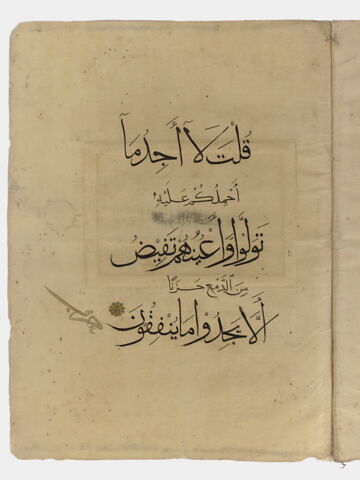 قُلْتَ لَآ أَجِدُ مَآ
أَحْمِلُكُمْ عَلَيْهِ
تَوَلَّوا۟ وَّأَعْيُنُهُمْ تَفِيضُ
مِنَ ٱلدَّمْعِ حَزَنًا
أَلَّا يَجِدُوا۟ مَا يُنْفِقُونَ